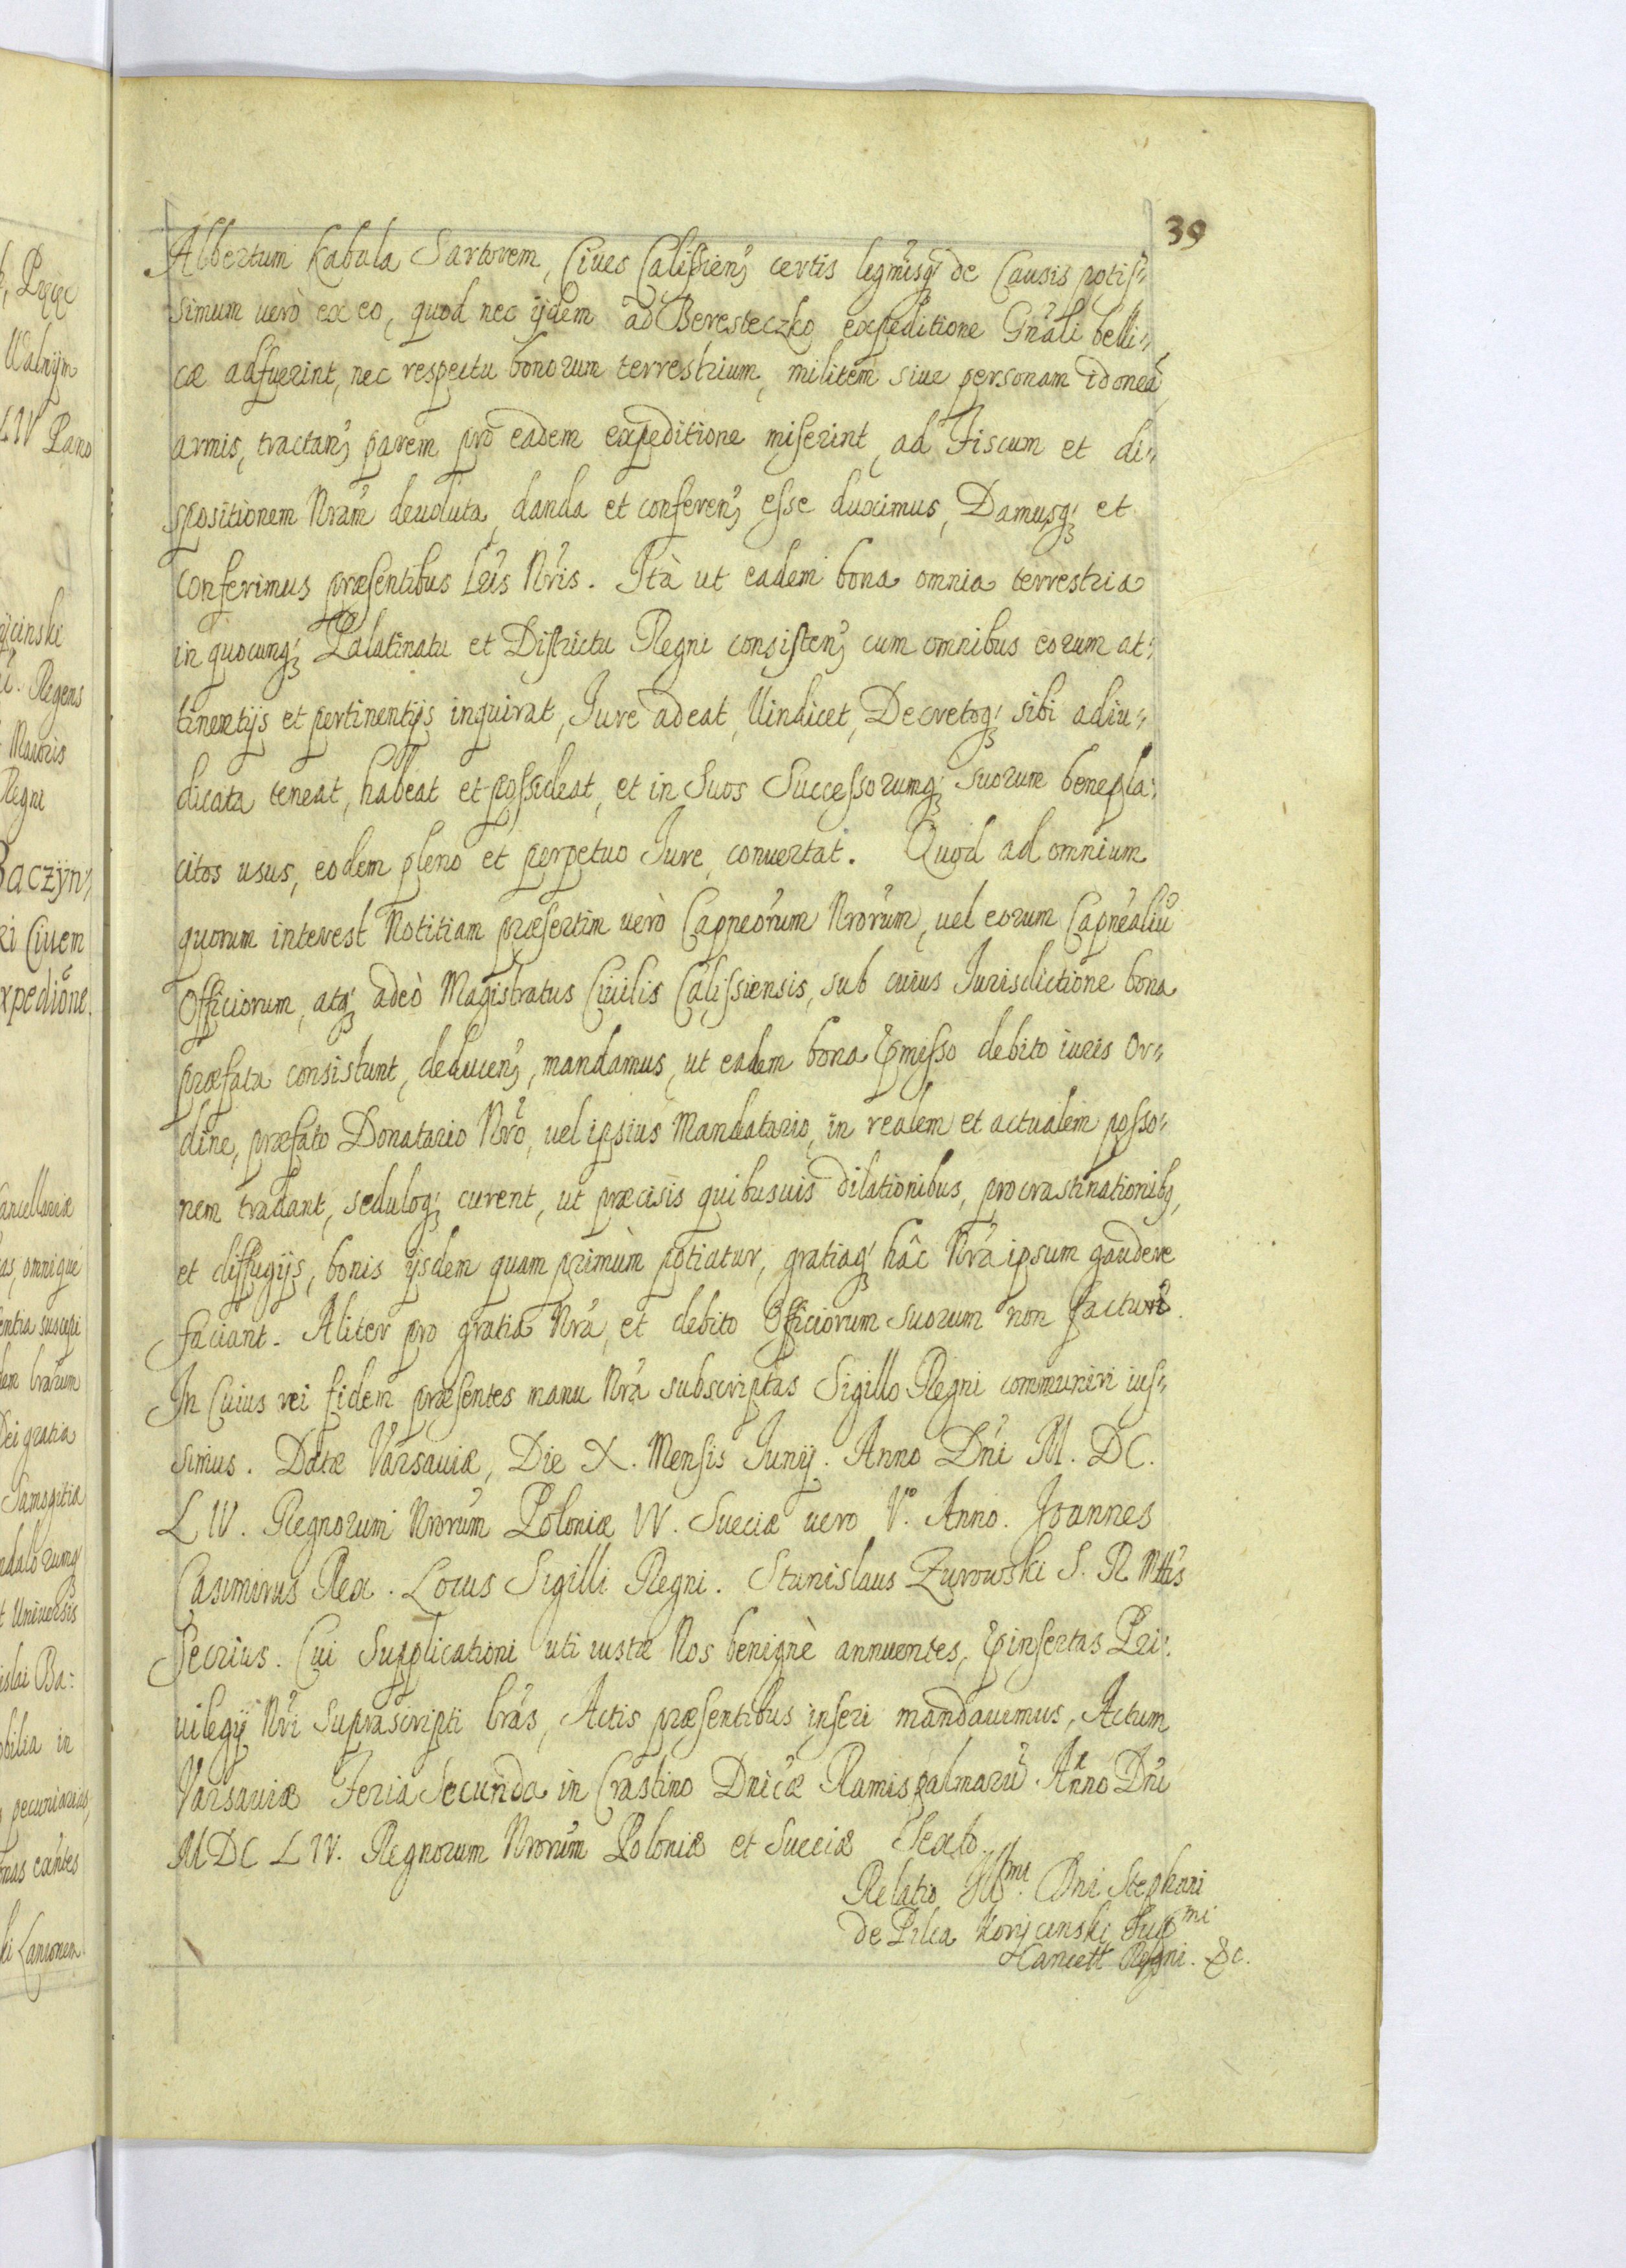 39
Albertum Kabula Sartorem, Ciues Calissien; certis legmisq; de Causis potis„
simum uerò ex eo, quod nec ijdem ad Beresteczko expeditione Gnali belli„
cæ adfuerint, nec respectu bonorum terrestrium, militem siue personam idoneã
armis, tractan; parem pro eadem expeditione miserint, ad Fiscum et di„
spositionem Nram deuoluta, danda et conferen; esse duximus, Damusq; et
conferimus præsentibus Lris Nris. Ità ut eadem bona omnia terrestria
in quocunq; Palatinatu et Districtu Regni consisten; cum omnibus eorum at„
tinentijs et pertinentijs inquirat, Jure adeat, Uindicet, Decretoq; sibi adiu„
dicata teneat, habeat et possideat, et in Suos Successorumq; suorum benepla„
citos usus, eodem pleno et perpetuo Jure, conuertat. Quod ad omnium
quorum interest Notitiam præsertim uerò Capneorum Nrorum, uel eorum Capnealiũ
Officiorum, atq; adeò Magistratus Ciuilis Calissiensis, sub cuius Jurisdictione bona
præfata consistunt, deducen; mandamus, ut eadem bona præmisso debito iuris Or„
dine, præfato Donatario Nro, uel ipsius Mandatario, in realem et actualem posso„
nem tradant, seduloq; curent, ut præcisis quibusuis dilationibus, procrastinationibq,
et diffugijs, bonis ijsdem quam primùm potiatur, gratiaq; hâc Nrã ipsum gaudere
faciant. Aliter pro gratia Nrã, et debito Officiorum suorum non facturi.
In Cuius rei fidem præsentes manu Nrã subscriptas Sigillo Regni communiri ius„
simus. Datæ Varsauiæ, Die X. Mensis Junij. Anno Dni M. DC.
LIV. Regnorum Nrorum Poloniæ IV. Sueciæ uero Vº. Anno. Joannes
Casimirus Rex. Locus Sigilli Regni. Stanislaus Zurowski S. R. Mttis
Secrius. Cui Supplicationi uti iustæ Nos benignè annuentes, præinsertas Pri„
uilegij Nri suprascripti lras, Actis præsentibus inseri mandauimus, Actum
Varsauiæ Feria Secunda in Crastino Dnicæ Ramispalmarũ Anno Dni
MDC LIV. Regnorum Nrorum Poloniæ et Sueciæ Sexto.
Relatio Illmi. Dni Stephani
de Pilca Korijcinski Supmi
Cancell Regni. &c.